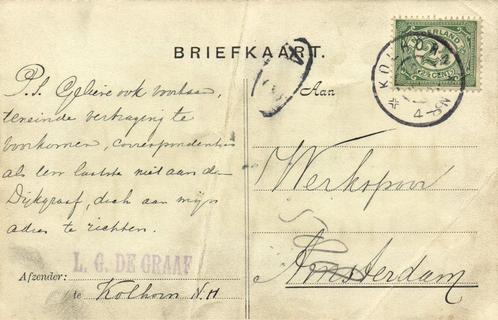 BRIEFKAART.
P.S. Gelieve ook voortaan,
teneinde vertraging te
voorkomen, correspondentie
als ten laatste niet aan den
Dijkgraaf, doch aan mijn
adres te richten.
L. C. DE GRAAF
Afzender:
te Kolhorn N.H
Aan
Werkspoor
Amsterdam
NEDERLAND
2½
CENT
KOLHORN
4